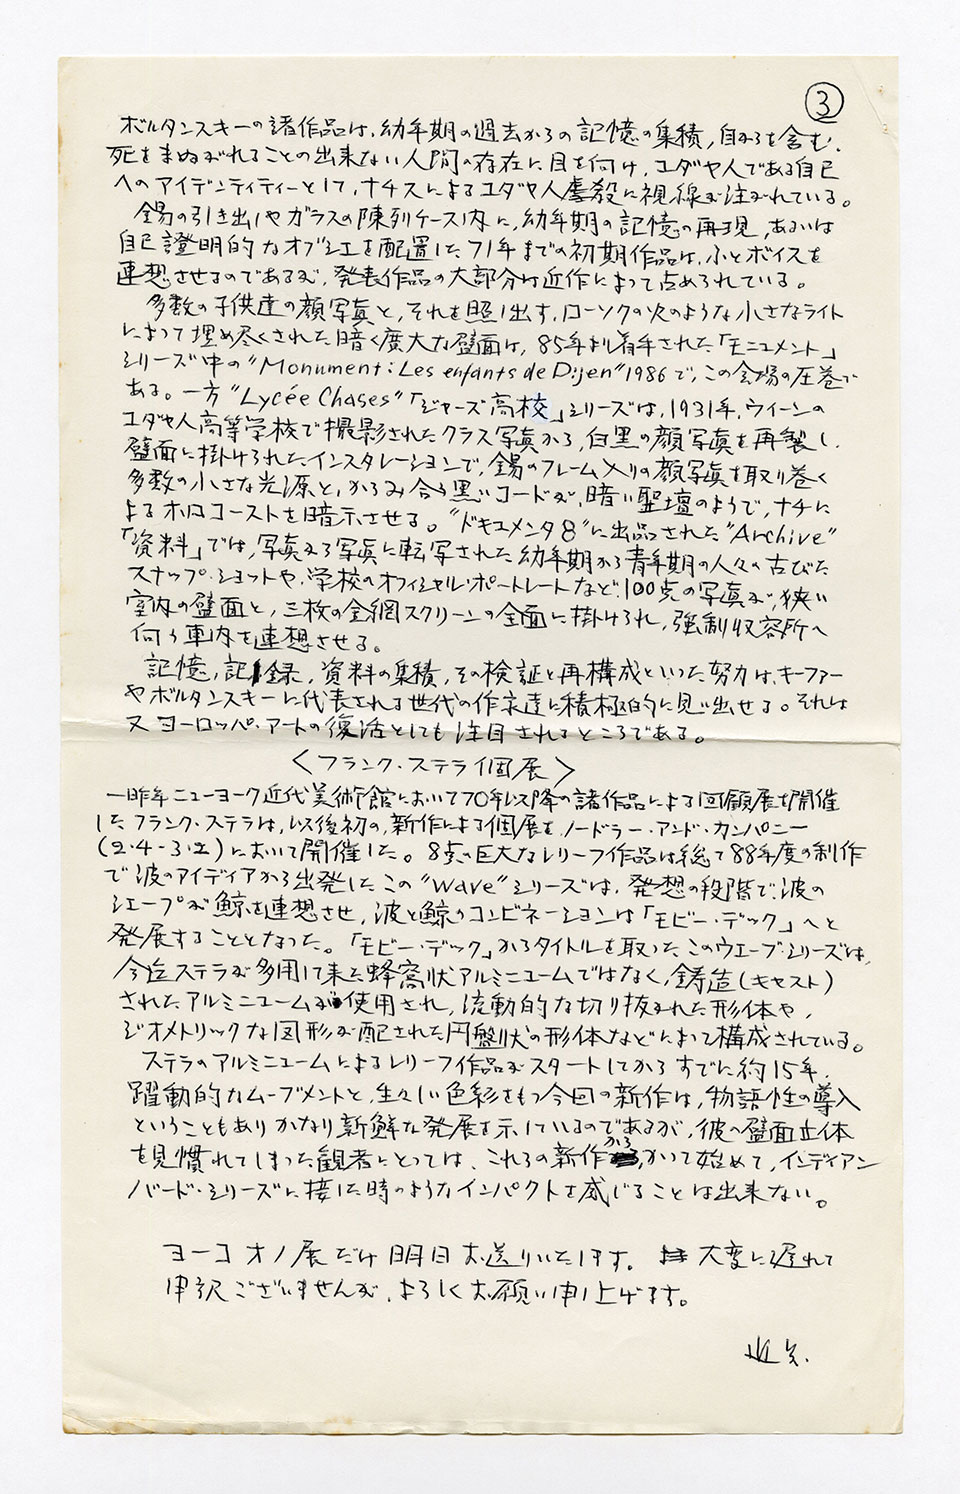 ③
ボルタンスキーの諸作品は、幼年期の過去からの記憶の集積、自らを含む、
死をまぬがれることの出来ない人間の存在に目を向け、ユダヤ人である自己
へのアイデンティティーとして、ナチスによるユダヤ人虐殺に視線が注がれている。
錫の引き出しやガラスの陳列ケース内に、幼年期の記憶の再現、あるいは
自己證明的なオブジェを配置した71年までの初期作品は、ふとボイスを
連想させるのであるが、発表作品の大部分は近作によって占められている。
多数の子供達の顔写真と、それを照し出す、ローソクの火のような小さなライト
によって埋め尽くされた暗く廣大な壁面は、85年より着手された「モニュメント」
シリーズ中の"Monument: Les enfants de Dijen"1986で、この会場の圧巻で
ある。一方"Lycée Chases"「シャーズ高校」シリーズは、1931年、ウィーンの
ユダヤ人高等学校で撮影されたクラス写真から、白黒の顔写真を再製し、
壁面に掛けられたインスタレーションで、錫のフレーム入りの顔写真を取り巻く
多数の小さな光源と、からみ合う黒いコードが、暗い聖壇のようで、ナチに
よるホロコーストを暗示させる。"ドキュメンタ8"に出品された"Archive"
「資料」では、写真から写真に転写された幼年期から青年期の人々の古びた
スナップ・ショットや、学校のオフィシャル・ポートレートなど、100点の写真が、狭い
室内の壁面と、三枚の金網スクリーンの全面に掛けられ、強制収容所へ
向う車内を連想させる。
記憶、記録、資料の集積、その検証と再構成といった努力は、キーファー
やボルタンスキーに代表される世代の作家達に積極的に見い出せる。それは
又ヨーロッパ・アートの復活としても注目されるところである。
〈フランク・ステラ個展〉
一昨年ニューヨーク近代美術館において70年以降の諸作品による回顧展を開催
したフランク・ステラは、以後初の、新作による個展を、ノードラー・アンド・カンパニー
(2・4-3・2)において開催した。8点の巨大なレリーフ作品は総て88年度の制作
で波のアイディアから出発したこの"Wave"シリーズは、発想の段階で、波の
シェープが鯨を連想させ、波と鯨のコンビネーションは「モビー・デック」へと
発展することとなった。「モビー・デック」からタイトルを取ったこのウエーブ・シリーズは、
今迄ステラが多用して来た蜂窩状アルミニュームではなく、鋳造(キャスト)
されたアルミニュームが使用され、流動的な切り抜かれた形体や、
ジオメトリックな図形が配された円盤状の形体などによって構成されている。
ステラのアルミニュームによるレリーフ作品がスタートしてからすでに約15年、
躍動的なムーブメントと、生々しい色彩をもつ今回の新作は、物語性の導入
ということもありかなり新鮮な発展を示しているのであるが、彼の壁面立体
を見慣れてしまった観者にとっては、これらの新作から、かつて始めて、インディアン
バード・シリーズに接した時のようなインパクトを感じることは出来ない。
ヨーコ オノ展だけ明日お送りいたします。大変に遅れて
申訳ございませんが、よろしくお願い申し上げます。